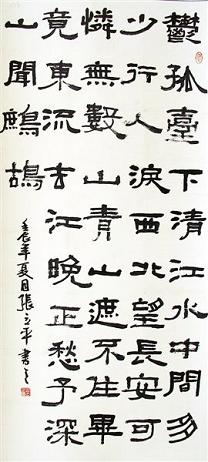 鬱孤臺下清江水中間多
少行人淚西北望長安可
憐無數山青山遮不住畢
竟東流去江晚正愁予深
山聞鷓鴣
壬辰年夏月張立平書